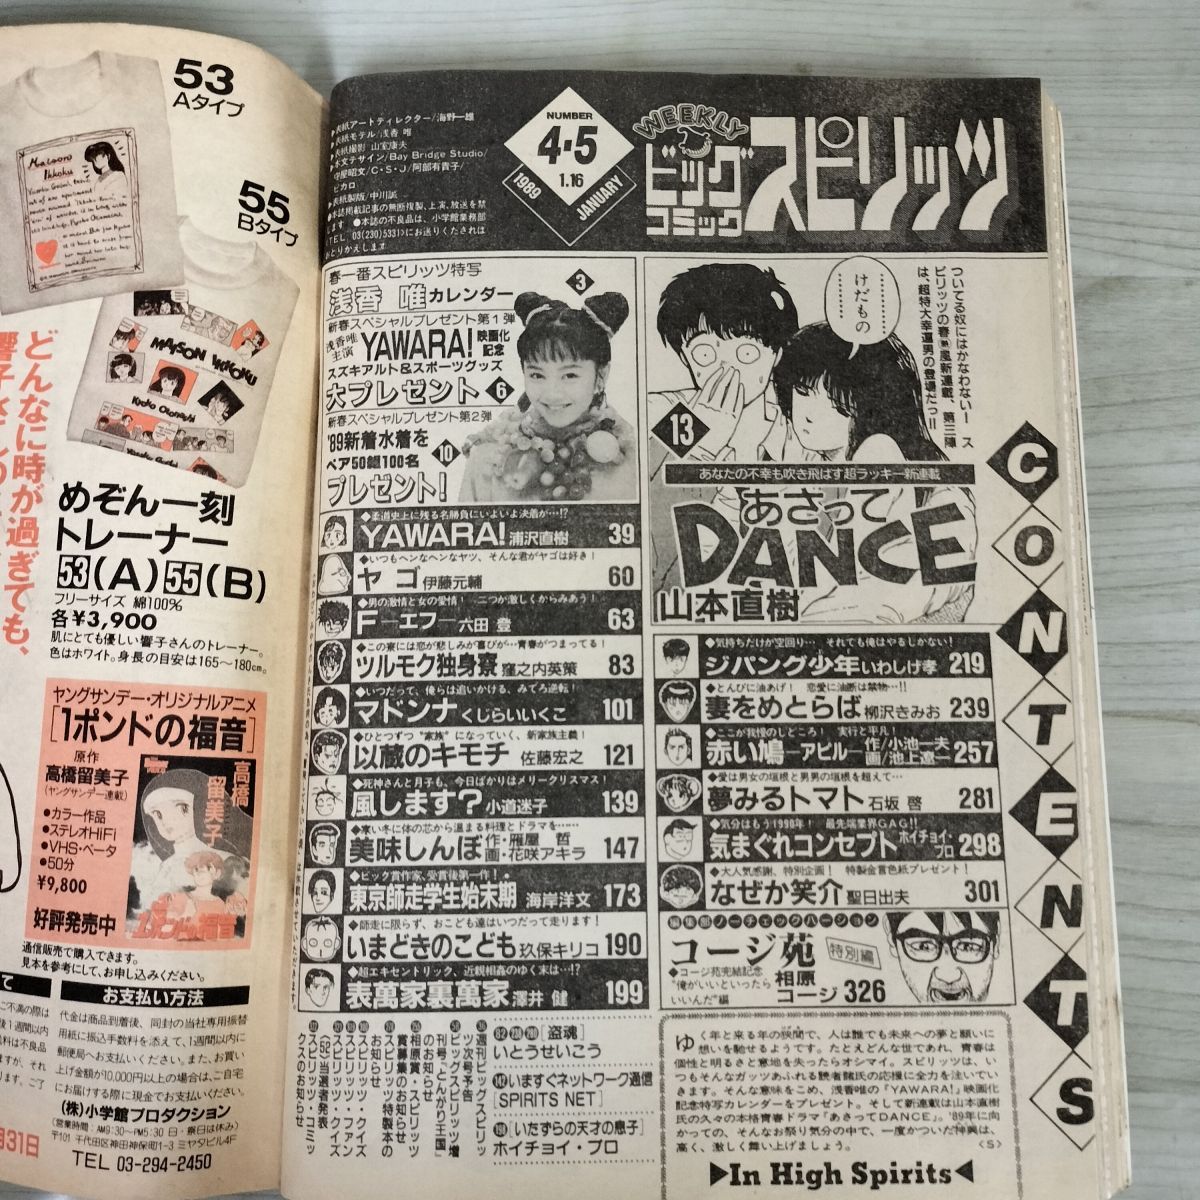 53
Aタイプ
55
Bタイプ
MAISON IKKOKU
めぞん一刻
トレーナー
53(A)55(B)
フリーサイズ 綿100%
各¥3,900
肌にとても優しい響子さんのトレーナー。
色はホワイト。身長の目安は165〜180cm。
どんなに時が過ぎても、
ヤングサンデー・オリジナルアニメ
[1ポンドの福音]
原作
高橋留美子
(ヤングサンデー連載)
●カラー作品
●ステレオHiFi
●VHS・ベータ
●50分
¥9,800
好評発売中
高橋留美子
1ポンドの福音
通信販売で購入できます。
見本を参考にして、お申し込みください。
お支払い方法
代金は商品到着後、同封の当社専用振替
用紙に振込手数料を添えて、1週間以内に
郵便局へお支払いください。また、お買い
上げ金額が10,000円以上の場合は、ご自宅
にお届けする際に現金でお支払ください。
(株)小学館プロダクション
(営業時間:AM9:30〜PM5:30 日・祭日は休み)
〒101 千代田区神田神保町1-3 ミヤタビル4F
TEL 03-294-2450
月31日
▶表紙アートディレクター/海野一雄
▶表紙モデル/浅香 唯
▶表紙撮影 山室康夫
▶本文デザイン/Bay Bridge Studio/
守屋昭文/C・S・J/阿部有貴子/
ピカロ
▶表紙製版/中川誠
●本誌掲載記事の無断複製、上演、放送を禁
じます ●本誌の不良品は、小学館業務部
(TEL 03(230)5331)にお送りくだされば
おとりかえします
NUMBER
4・5
1.16
1989
JANUARY
WEEKLY
ビッグコミック
スピリッツ
春一番スピリッツ特写
浅香 唯カレンダー
3
新春スペシャルプレゼント第1弾
浅香唯主演 YAWARA! 映画化記念
スズキアルト&スポーツグッズ
大プレゼント 6
新春スペシャルプレゼント第2弾
'89新着水着を
ペア50組100名 10
プレゼント!
◆柔道史上に残る名勝負にいよいよ決着が…!?
YAWARA! 浦沢直樹 39
◆いつもヘンなヘンなヤツ、そんな君がヤゴは好き!
ヤゴ 伊藤元輔 60
◆男の激情と女の愛情! 二つが激しくからみあう!
F―エフ― 六田 登 63
◆この寮には恋が悲しみが喜びが…青春がつまってる!
ツルモク独身寮 窪之内英策 83
◆いつだって、俺らは追いかける、みてろ逆転!
マドンナ くじらいいくこ 101
◆ひとつずつ“家族”になっていく、新家族主義!
以蔵のキモチ 佐藤宏之 121
◆死神さんと月子も、今日ばかりはメリークリスマス!
風します? 小道迷子 139
◆寒い冬に体の芯から温まる料理とドラマを……
美味しんぼ 作・雁屋 哲 画・花咲アキラ 147
◆ビック賞作家、受賞後第一作!
東京師走学生始末期 海岸洋文 173
◆師走に限らず、おこども達はいつだって走ります!
いまどきのこども 玖保キリコ 190
◆超エキセントリック、近親相姦のゆく末は…!?
表萬家裏萬家 澤井 健 199
ついてる奴にはかなわないー スピリッツの春一番風新連載、第三陣は、超特大幸運男の登場だっ!!
……けだもの
13
あなたの不幸も吹き飛ばす超ラッキー新連載
あさってDANCE
山本直樹
◆気持ちだけが空回り… それでも俺はやるしかない!
ジパング少年 いわしげ孝 219
◆とんびに油あげ! 恋愛に油断は禁物…!!
妻をめとらば 柳沢きみお 239
◆ここが我慢のしどころ! 実行と平凡!
赤い鳩―アピル― 作/小池一夫 画/池上遼一 257
◆愛は男女の垣根と男男の垣根を超えて…
夢みるトマト 石坂 啓 281
◆気分はもう1998年! 最先端業界GAG!!
気まぐれコンセプト ホイチョイ・プロ 298
◆大人気感謝、特別企画! 特製金言色紙プレゼント!
なぜか笑介 聖日出夫 301
編集部ノーチェックバージョン
コージ苑 特別編
◆コージ苑完結記念
“俺がいいといったらいいんだ”編
相原コージ 326
CONTENTS
[盗魂]
いとうせいこう
いますぐネットワーク通信
[SPIRITS NET]
[いたずらの天才の息子]
ホイチョイ・プロ
ゆく年と来る年の狭間で、人は誰でも未来への夢と願いに
想いを馳せるようです。たとえどんな世であれ、青春は
個性と明るさと意地を失ったらオシマイ。スピリッツは、い
つもそんなガッツあふれる読者諸氏の応援に全力を注いでい
きます。そんな意味をこめ、浅香唯の「YAWARA!」映画化
記念特写カレンダーをプレゼント。そして新連載は山本直樹
氏の久々の本格青春ドラマ「あさってDANCE」。'89年に向
かっての、そんなお祭り気分の中で、一度かついだ神輿は、
高く、激しく舞い上げましょう。 <S>
▶In High Spirits◀